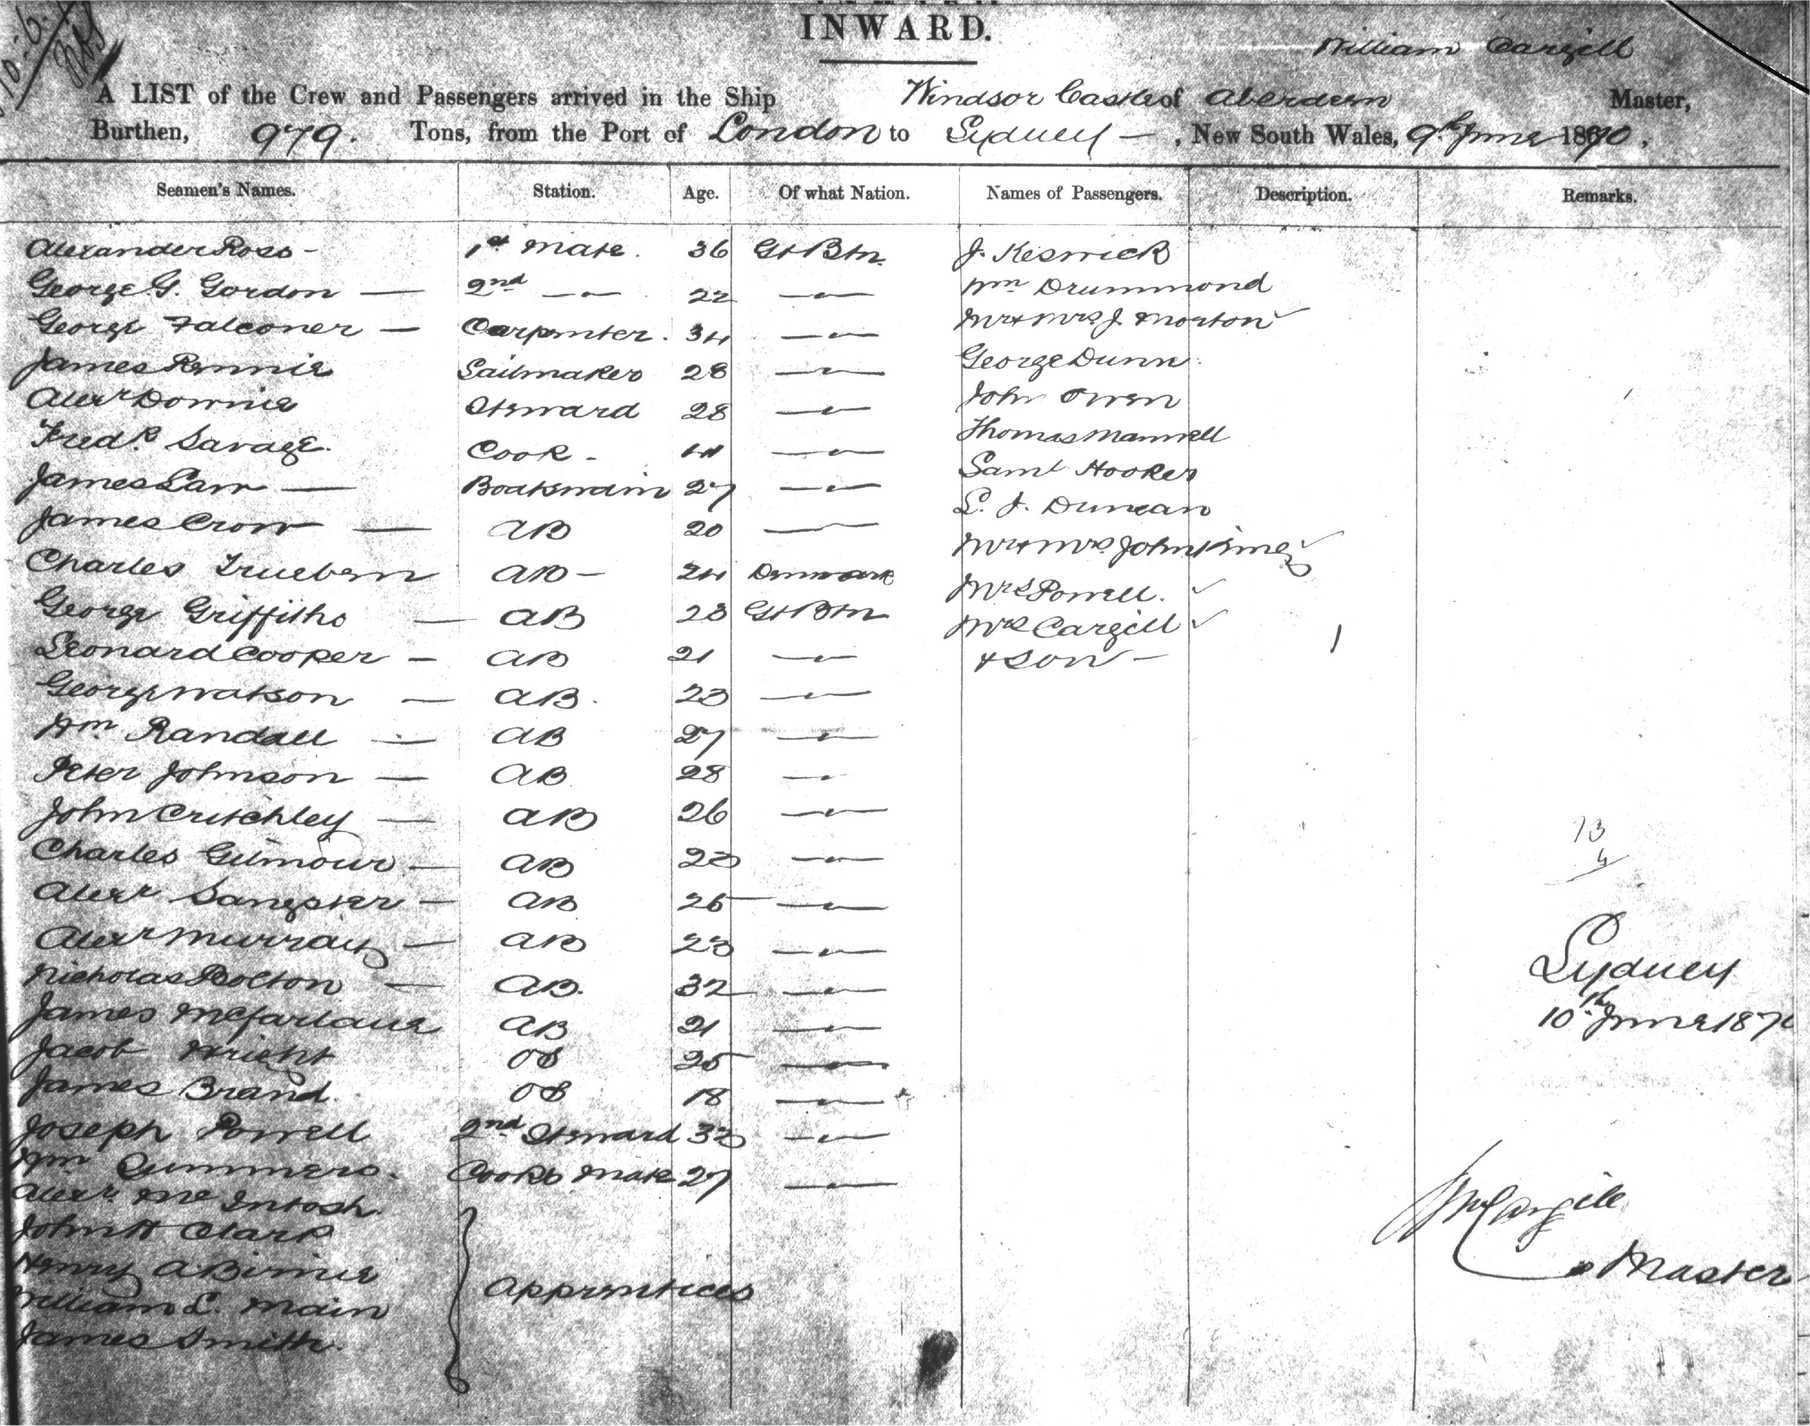 INWARD.
William Cargill
A LIST of the Crew and Passengers arrived in the Ship Windsor Castle of Aberdeen Master,
Burthen, 979. Tons, from the Port of London to Sydney - , New South Wales, 9th June 1870.
Seamen's Names. Station. Age. Of what Nation. Names of Passengers. Description. Remarks.
Alexander Ross - 1st Mate. 36 Gt Btn. J. Keswick
George G. Gordon — 2nd —"— 22 —"— Wm Drummond
George Falconer — Carpenter. 34 —"— Mr & Mrs J. Morton
James Rennie Sailmaker 28 —"— George Dunn.
Alexr Downie Steward 28 —"— John Owen
Fredk. Savage. Cook - 41 —"— Thomas Manwell
James Law — Boatswain 27 —"— Saml Hooker
James Crow — AB 20 —"— L. J. Duncan
Charles Truebern AB - 24 Denmark Mr & Mrs John King
George Griffiths — AB 23 Gt Btn Mrs Powell.
Leonard Cooper — AB 21 —"— Mrs Cargill
& Son —
George Watson — AB. 23 —"—
Wm Randall — AB 27 —"—
Peter Johnson — AB 28 —"—
John Critchley — AB 26 —"—
Charles Gilmour — AB 23 —"—
Alexr Sangster — AB 25 —"—
Alexr Murray — AB 23 —"—
Nicholas Bolton — AB. 32 —"—
James McFarlane AB 21 —"—
Jacob Wright OS 25 —"—
James Brand. OS 18 —"—
Joseph Powell 2nd Steward 33 —"—
Wm Summers. Cooks Mate 27 —"—
Alexr McIntosh.
John H Clark
Henry A Birnie
William L. Main
James Smith.
Apprentices
13
4
Sydney
10th June 1870
Wm Cargill
Master